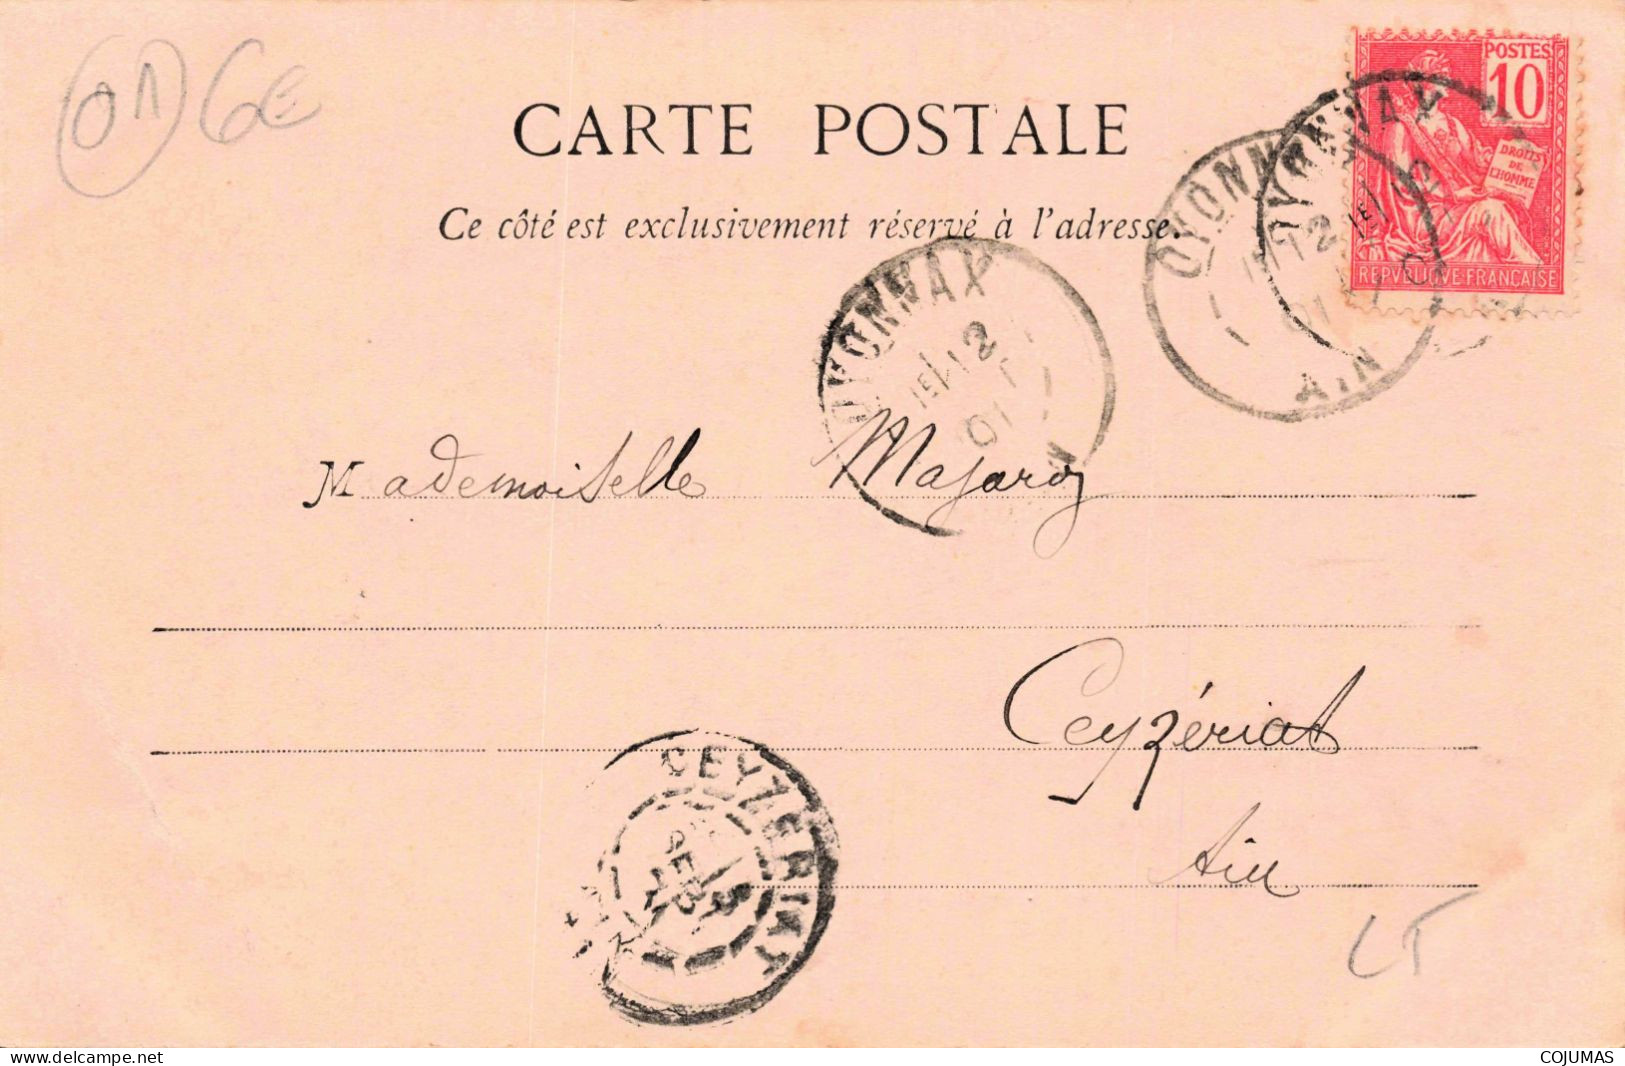 01 6E
CARTE POSTALE
Ce côté est exclusivement réservé à l'adresse.
POSTES
10
DROITS
DE
L'HOMME
REPVBLIQVE·FRANÇAISE
OYONNAX
12
01
AIN
OYONNAX
OYONNAX
12
01
Mademoiselle Majaroz
Ceyzériat
Ain
CEYZERIAT
SEPT
LT
www.delcampe.net
COJUMAS